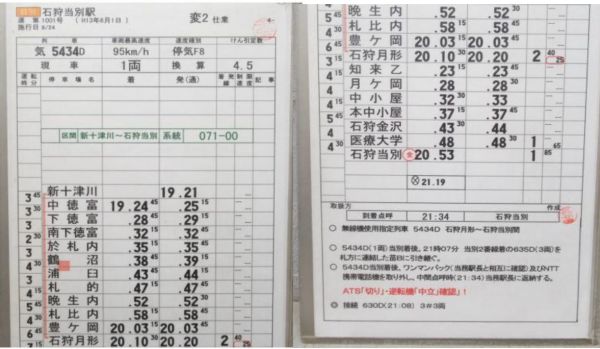 石狩当別駅
運 第1001号 (H13年6月1日)
施行日 8/24
変2 仕業
列 車 車両最高速度 速度種別 けん引定数
気 5434D 95km/h 停気F8
現 車 1両 換 算 4.5
運転時分 停 車 場 名 着 発(通) 着発線 制限速度 記 事
区間 新十津川～石狩当別 系統 071-00
新十津川 19.21
3 45 中徳富 19.24 45 .25 15
3 30 下徳富 .28 45 .29 15
3 下徳富
南下徳富 .32 15 .32 45
於札内 .35 15 .35 45
鶴沼 .38 45 .39 15
浦臼 .43 45 .44 15
札的 .47 15 .47 45
晩生内 .52 .52 30
札比内 .58 .58 30
豊ケ岡 20.03 20.03 30
石狩月形 20.10 30 20.20 30 2 40 25
晩生内 .52 .52 30
札比内 .58 .58 30
豊ケ岡 20.03 20.03 30
石狩月形 20.10 30 20.20 30 2 40 25
知来乙 .23 .23
月ケ岡 .28 .28
中小屋 .32 .33
本中小屋 .37 .37
石狩金沢 .43 .44
医療大学 .48 .48 1
石狩当別 20.53 1
21.19
取扱方 作成
到着点呼 21:34 石狩当別
○ 無線機使用指定列車 5434D 石狩月形～石狩当別間
○ 5434D(1両) 当別着後、21時07分 当別2番線着の635D(3両)を
札方に連結した苗BIに引き継ぐ。
○ 5434D当別着後、ワンマンパック(当務駅長と相互に確認)及びNTT
携帯電話機を取り外し、中間点呼時(21:34)当務駅長に返納する。
ATS「切り」・逆転機「中立」確認!
◎ 接続 630D(21:08) 3#3両